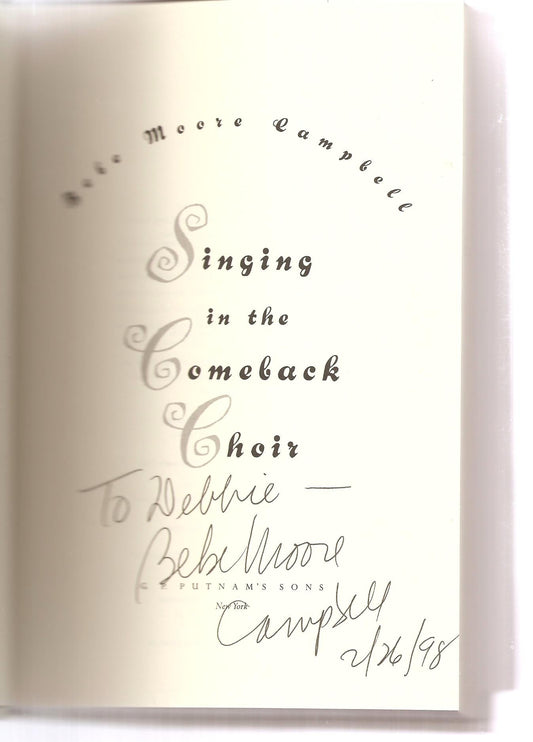 Bebe Moore Campbell
Singing
in the
Comeback
Choir
To Debbie —
Bebe Moore
G. P. PUTNAM'S SONS
New York
Campbell
2/26/98